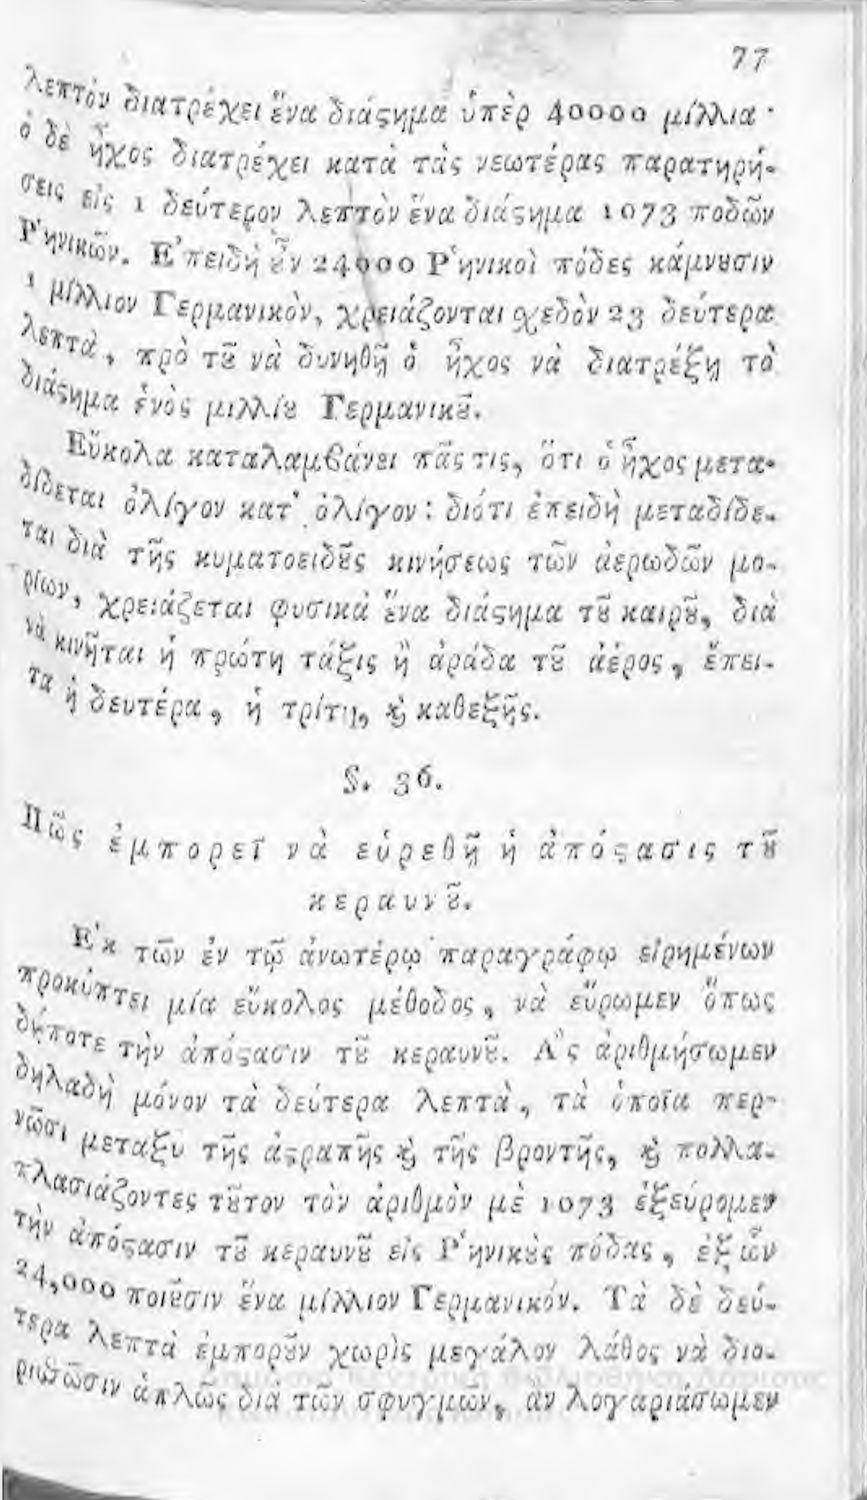 77
λεπτὸν διατρέχει ἕνα διάϛημα ὑπὲρ 40000 μίλλια·
ὁ δὲ ἦχος διατρέχει κατὰ τὰς νεωτέρας παρατηρή-
σεις εἰς 1 δεύτερον λεπτὸν ἕνα διάϛημα 1073 ποδῶν
Ῥηνικῶν. Ἐπειδὴ ȣ̓͂ν 24000 Ῥηνικοὶ πόδες κάμνȣσιν
1 μίλλιον Γερμανικὸν, χρειάζονται σχεδὸν 23 δεύτερα
λεπτὰ, πρὸ τȣ͂ νὰ δυνηθῇ ὁ ἦχος νὰ διατρέξῃ τὸ
διάϛημα ἑνὸς μιλλίȣ Γερμανικȣ͂.
Εὔκολα καταλαμβάνει πᾶς τις, ὅτι ὁ ἦχος μετα-
δίδεται ὀλίγον κατ' ὀλίγον: διότι ἐπειδὴ μεταδίδε-
ται διὰ τῆς κυματοειδȣ͂ς κινήσεως τῶν ἀερωδῶν μο-
ρίων, χρειάζεται φυσικὰ ἕνα διάϛημα τȣ͂ καιρȣ͂, διὰ
νὰ κινῆται ἡ πρώτη τάξις ἢ ἀράδα τȣ͂ ἀέρος, ἔπει-
τα ἡ δευτέρα, ἡ τρίτη, ϗ̀ καθεξῆς.
§. 36.
Πῶς ἐμπορεῖ νὰ εὑρεθῇ ἡ ἀπόϛασις τȣ͂
κεραυνȣ͂.
Ἐκ τῶν ἐν τῷ ἀνωτέρῳ παραγράφῳ εἰρημένων
προκύπτει μία εὔκολος μέθοδος, νὰ εὕρωμεν ὅπως
δήποτε τὴν ἀπόϛασιν τȣ͂ κεραυνȣ͂. Ἂς ἀριθμήσωμεν
δηλαδὴ μόνον τὰ δεύτερα λεπτὰ, τὰ ὁποῖα περ-
νῶσι μεταξὺ τῆς ἀϛραπῆς ϗ̀ τῆς βροντῆς, ϗ̀ πολλα-
πλασιάζοντες τȣ͂τον τὸν ἀριθμὸν μὲ 1073 ἐξεύρομεν
τὴν ἀπόϛασιν τȣ͂ κεραυνȣ͂ εἰς Ῥηνικȣ̀ς πόδας, ἐξ ὧν
24,000 ποιȣ͂σιν ἕνα μίλλιον Γερμανικόν. Τὰ δὲ δεύ-
τερα λεπτὰ ἐμπορȣ͂ν χωρὶς μεγάλον λάθος νὰ διο-
ρισθῶσιν ἁπλῶς διὰ τῶν σφυγμῶν, ἂν λογαριάσωμεν